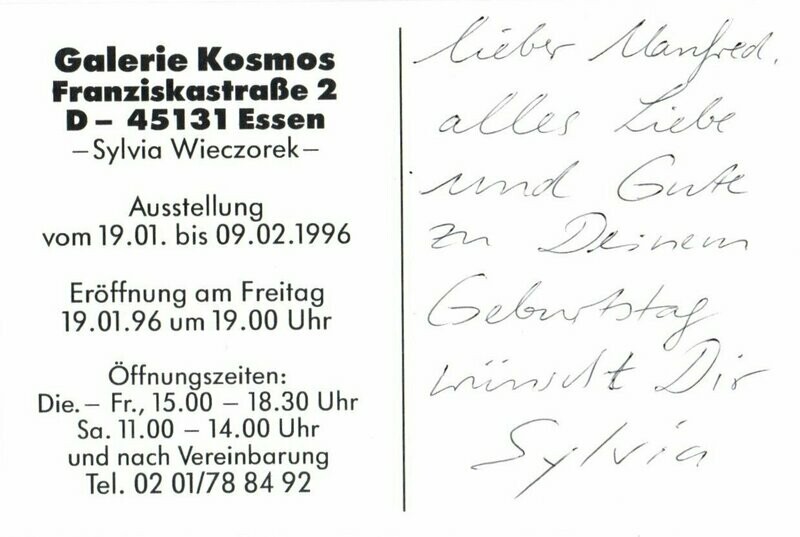 Galerie Kosmos
Franziskastraße 2
D – 45131 Essen
– Sylvia Wieczorek –
Ausstellung
vom 19.01. bis 09.02.1996
Eröffnung am Freitag
19.01.96 um 19.00 Uhr
Öffnungszeiten:
Die. – Fr., 15.00 – 18.30 Uhr
Sa. 11.00 – 14.00 Uhr
und nach Vereinbarung
Tel. 02 01/78 84 92
lieber Manfred,
alles Liebe
und Gute
zu Deinem
Geburtstag
wünscht Dir
Sylvia